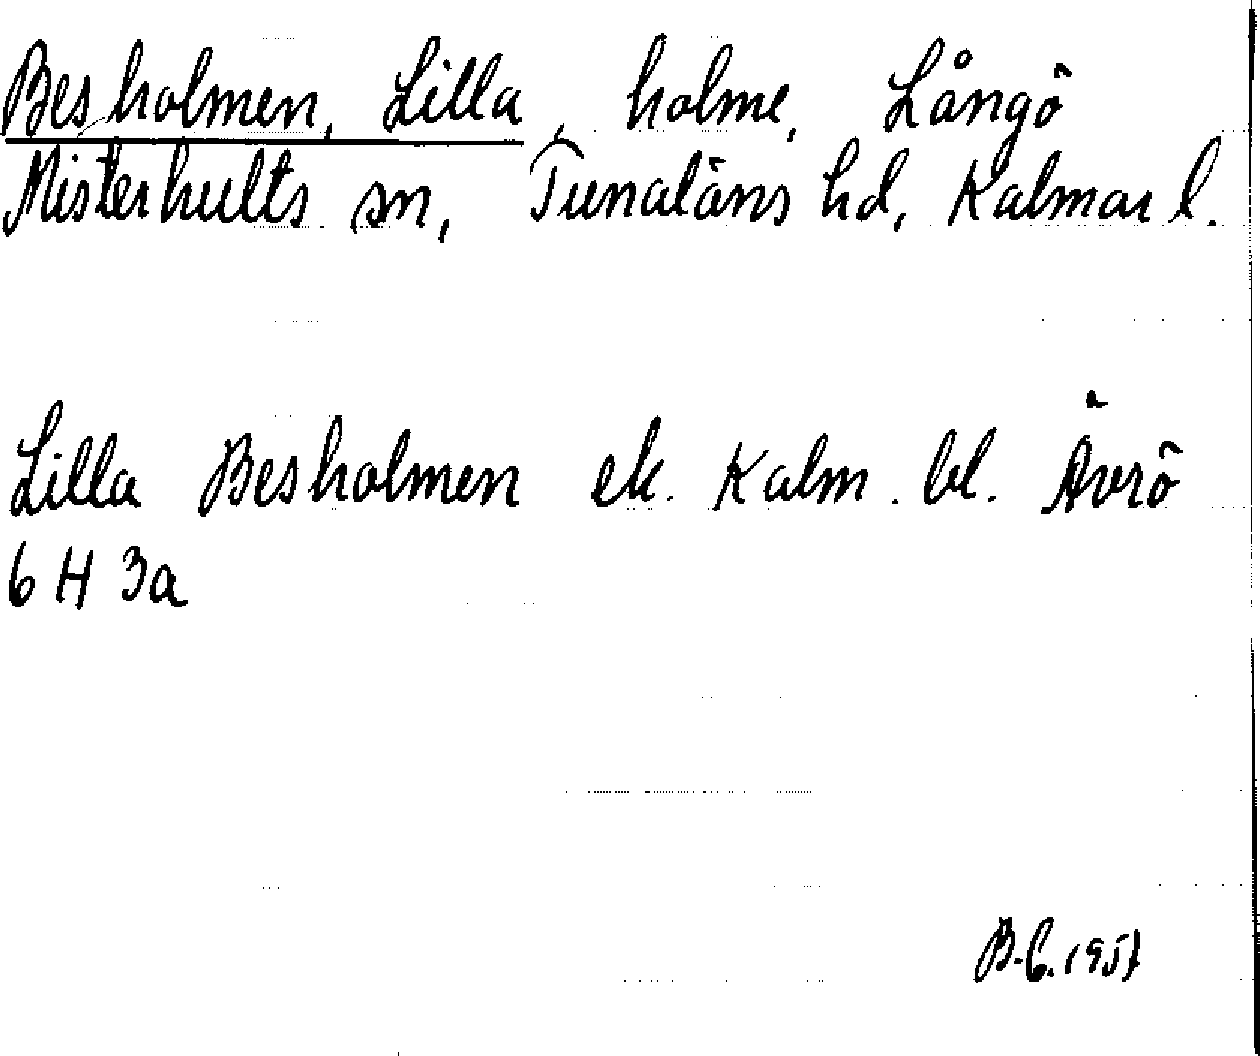 Besholmen, Lilla, holme, Långö
Misterhults sn, Tunaläns hd, Kalmar l.
Lilla Besholmen ek. Kalm. bl. Ävrö
6 H 3a
B.G. 1957